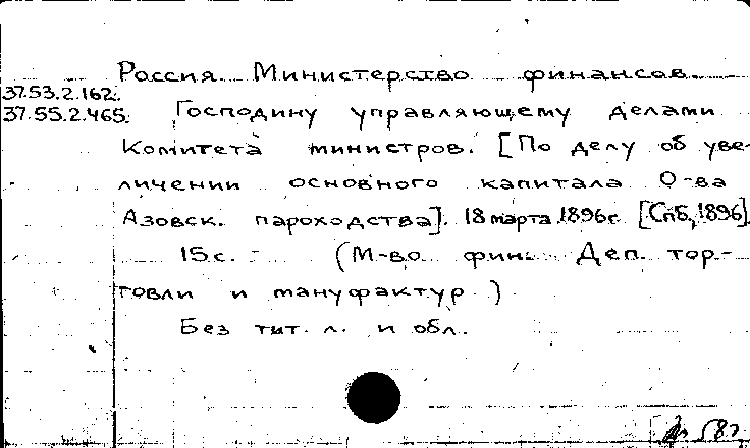 Россия. Министерство финансов.
37.53.2.162.
37.55.2.465. Господину управляющему делами
Комитета министров. [По делу об уве-
личении основного капитала О-ва
Азовск. пароходства]. 18 марта 1896 г. [Спб, 1896].
15 с. - (М-во фин. Деп. тор-
говли и мануфактур)
Без тит. л. и обл.
58 г.